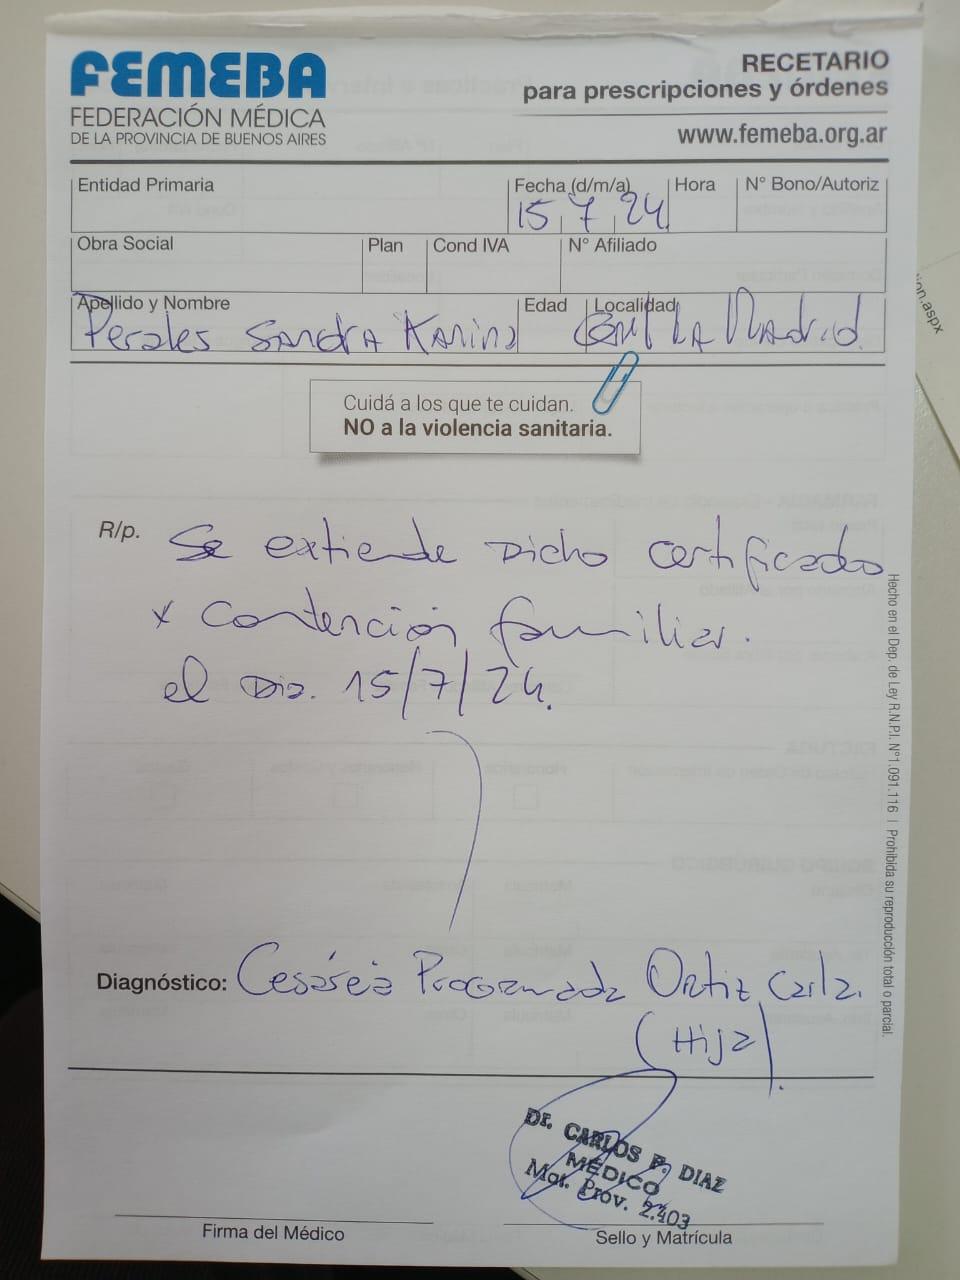 FEMEBA
FEDERACIÓN MÉDICA
DE LA PROVINCIA DE BUENOS AIRES
RECETARIO
para prescripciones y órdenes
www.femeba.org.ar
Entidad Primaria
Fecha (d/m/a)
15 7 24
Hora
N° Bono/Autoriz
Obra Social
Plan
Cond IVA
N° Afiliado
Apellido y Nombre
Edad
Localidad
Perales Sandra Karina LA MAdrid
Cuidá a los que te cuidan.
NO a la violencia sanitaria.
R/p.
Se extiende Dicho certificado
x contención familiar.
el Dia. 15/7/24.
Diagnóstico: Cesárea Programada Ortiz Carla.
(Hija).
Dr. CARLOS P. DIAZ
MÉDICO
Mat. Prov. 2.403
Firma del Médico
Sello y Matrícula
Hecho en el Dep. de Ley R.N.P.I. N°1.091.116 | Prohibida su reproducción total o parcial.